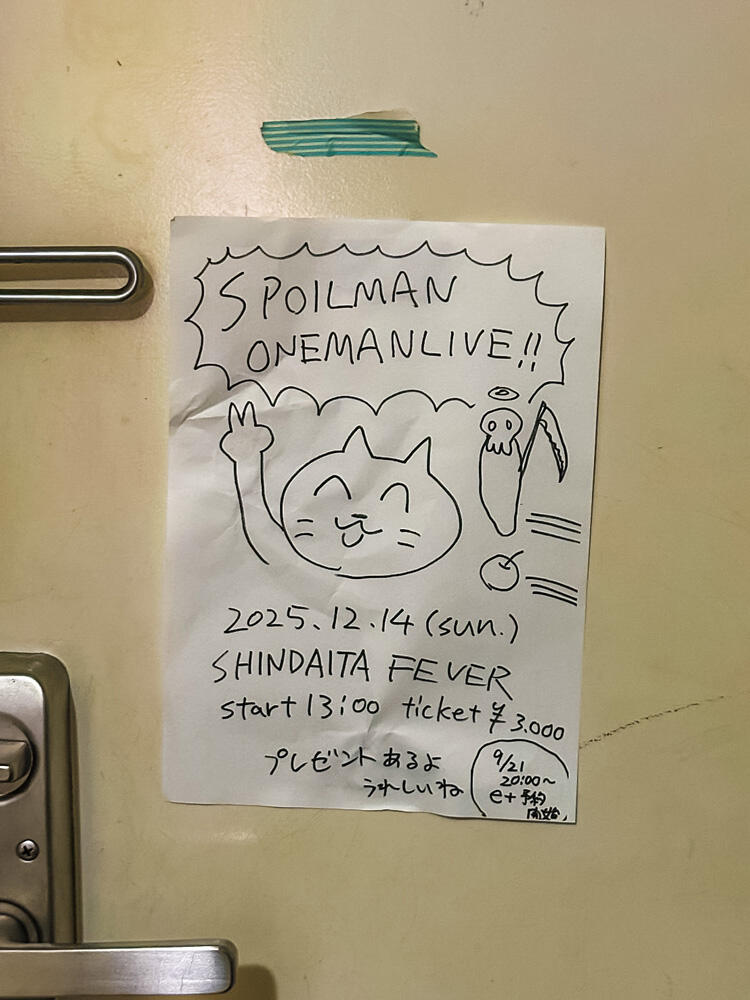 SPOILMAN
ONEMANLIVE!!
2025.12.14 (sun.)
SHINDAITA FEVER
start 13:00 ticket ¥3.000
プレゼントあるよ
うれしいね
9/21
20:00~
e+予約
開始。